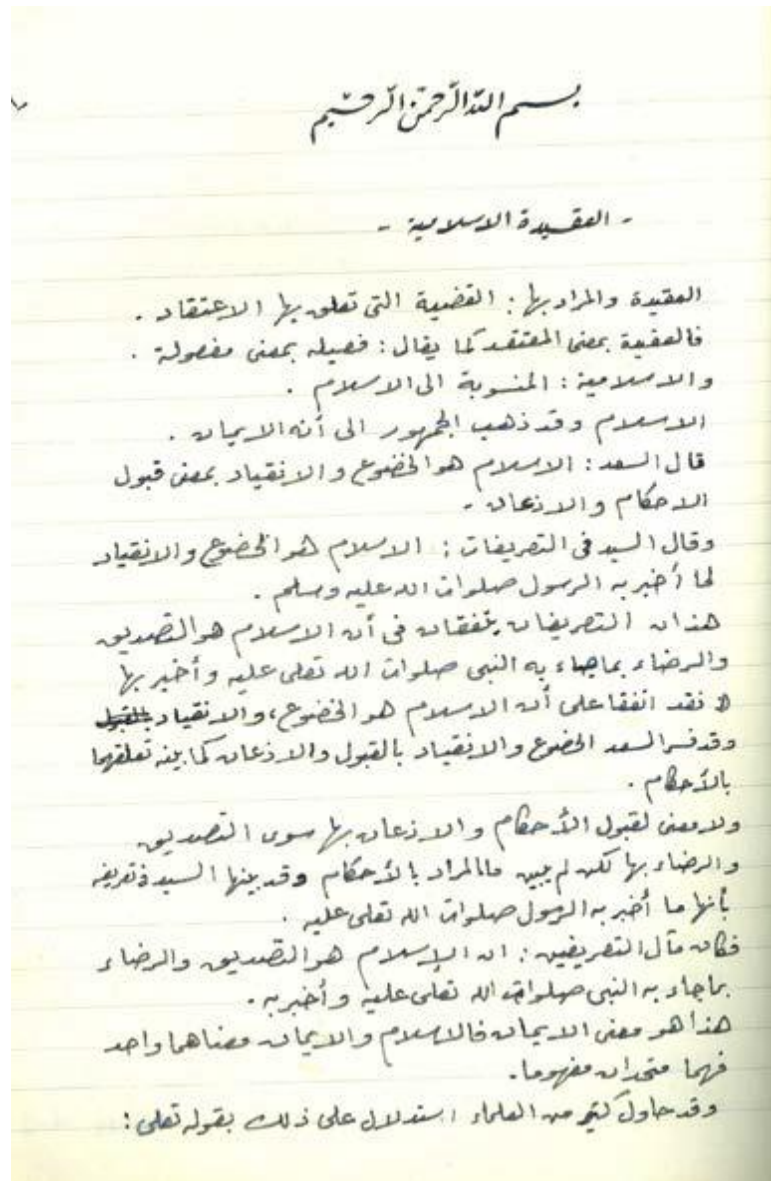 بسم الله الرحمن الرحيم
- العقيدة الاسلامية -
العقيدة والمراد بها : القضية التى تعلق بها الاعتقاد .
فالعقيدة بمعنى المعتقد كما يقال : فصيله بمعنى مفصولة .
والاسلامية : المنسوبة الى الاسلام .
الاسلام وقد ذهب الجمهور الى أنه الايمان .
قال السعد : الاسلام هو الخضوع والانقياد بمعنى قبول
الاحكام والاذعان -
وقال السيد فى التعريفات : الاسلام هو الخضوع والانقياد
لما أخبر به الرسول صلوات الله عليه وسلم .
هذان التعريفان يتفقان فى أن الاسلام هو التصديق
والرضاء بما جاء به النبى صلوات الله تعلى عليه وأخبر بها
فقد اتفقا على أن الاسلام هو الخضوع، والانقياد بالقبول
وقد فسر السعد الخضوع والانقياد بالقبول والاذعان كما بينه تعلقهما
بالأحكام .
ولا معنى لقبول الأحكام والاذعان بها سوى التصديق
والرضاء بها لكن لم يبين ما المراد بالأحكام وقد بينها السيد فى تعريفه
بأنها ما أخبر به الرسول صلوات الله تعلى عليه .
فكان مآل التعريفين : ان الإسلام هو التصديق والرضاء
بما جاء به النبى صلوات الله تعلى عليه وأخبر به .
هذا هو معنى الايمان فالاسلام والايمان معناهما واحد
فهما متحدان مفهوما .
وقد حاول كثير من العلماء استدلال على ذلك بقوله تعلى :